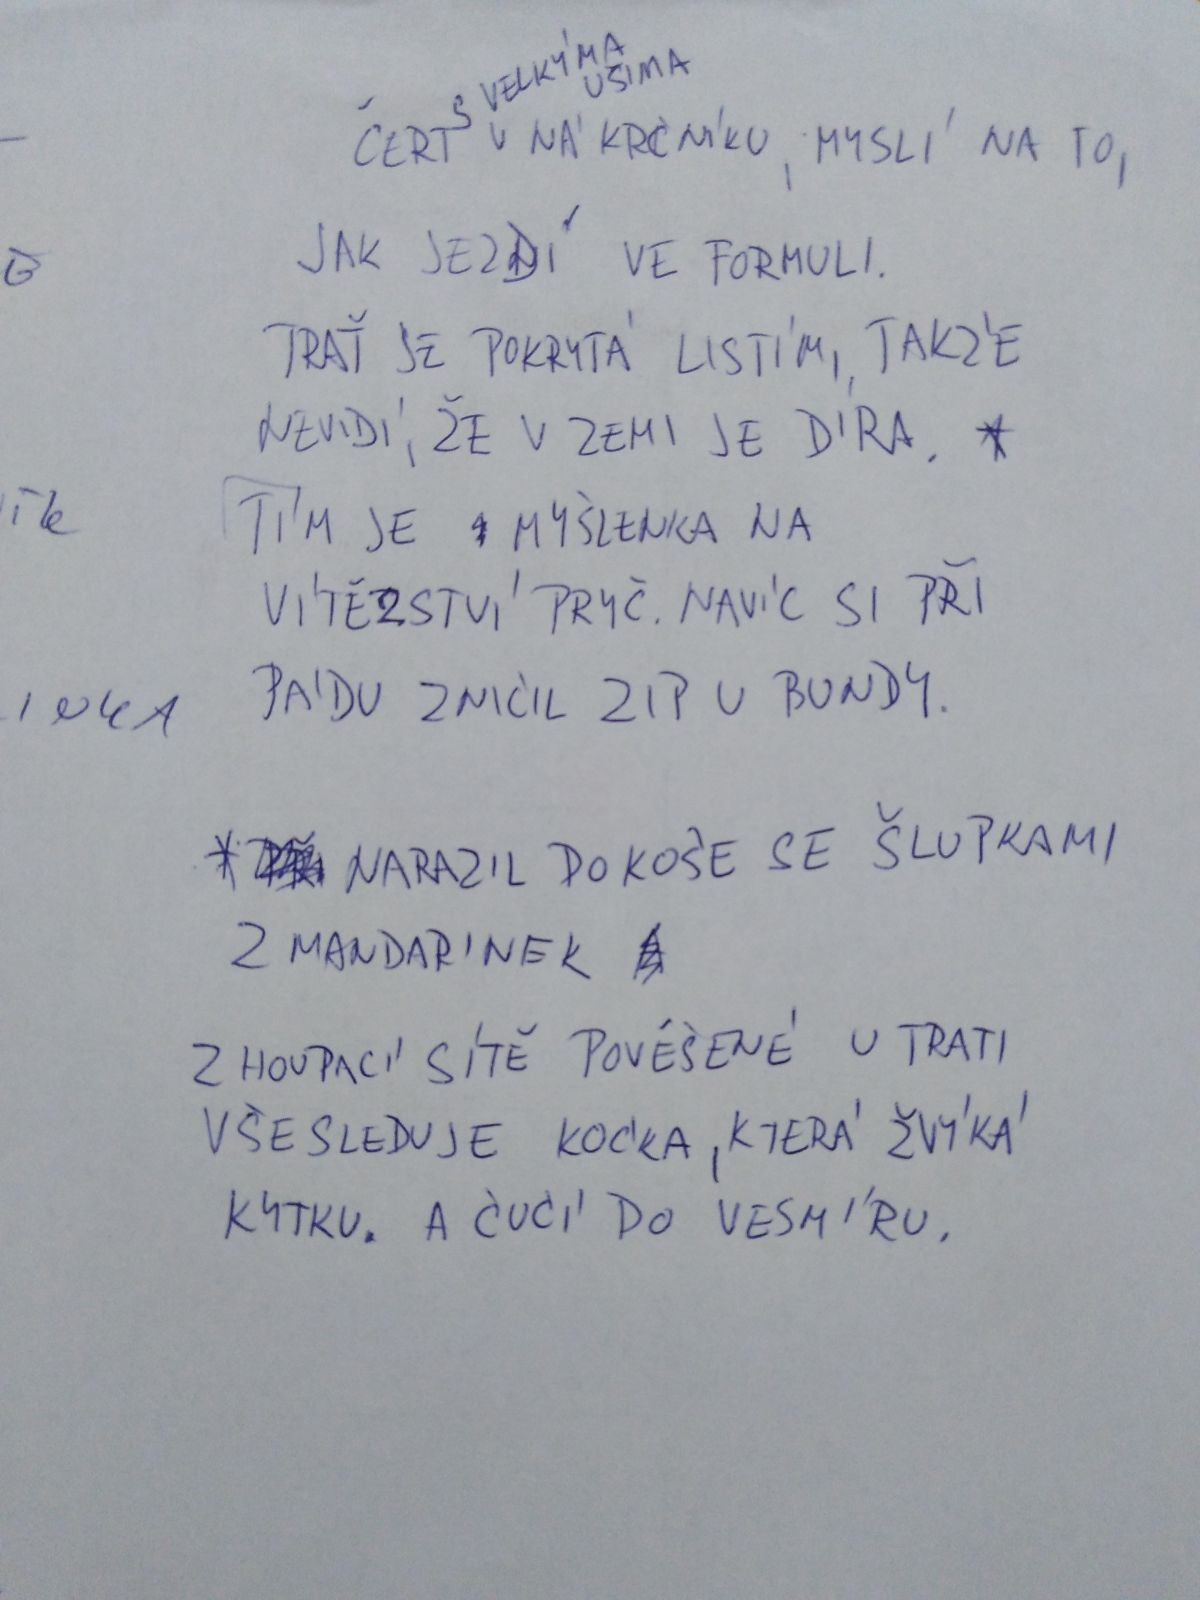 S VELKÝMA
UŠIMA
ČERT V NÁKRČNÍKU, MYSLÍ NA TO,
JAK JEZDÍ VE FORMULI.
TRAŤ JE POKRYTÁ LISTÍM, TAKŽE
NEVIDÍ, ŽE V ZEMI JE DÍRA. *
TÍM JE MYŠLENKA NA
VÍTĚZSTVÍ PRYČ. NAVÍC SI PŘI
PÁDU ZNIČIL ZIP U BUNDY.
* NARAZIL DO KOŠE SE ŠLUPKAMI
Z MANDARINEK
Z HOUPACÍ SÍTĚ POVĚŠENÉ U TRATI
VŠE SLEDUJE KOČKA, KTERÁ ŽVÝKÁ
KYTKU. A ČUČÍ DO VESMÍRU.